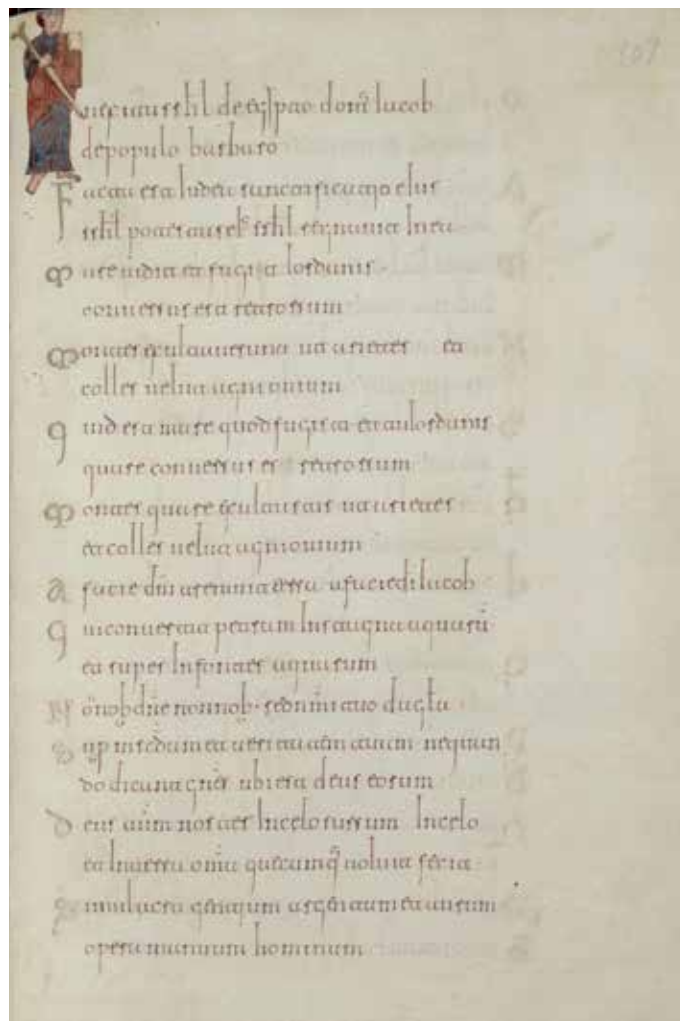 107
In exitu isrhl de egypto dom' iacob
de populo barbaro
Facta est iudea sanctificatio eius
isrhl potestas eius isrhl regnavit in ea
Mare vidit et fugit iordanis
conversus est retrorsum
Montes exultaverunt ut arietes et
colles velut agni ovium
Quid est mare quod fugisti et tu iordanis
quare conversus es retrorsum
Montes quare exultastis ut arietes
et colles velut agni ovium
A facie dni mota est terra a facie di iacob
Qui convertit petram in stagna aquarū
et super in fontes aquarum
Nō nob dne non nob sed nmi tuo da gla
Sup misrcdam et veritatem tuam nequan
do dicant gnes ubi est deus eorum
Deus autm noster in celo sursum in celo
et in terra omia quecumq voluit fecit
Simulacra gentium argentum et aurum
opera manuum hominum